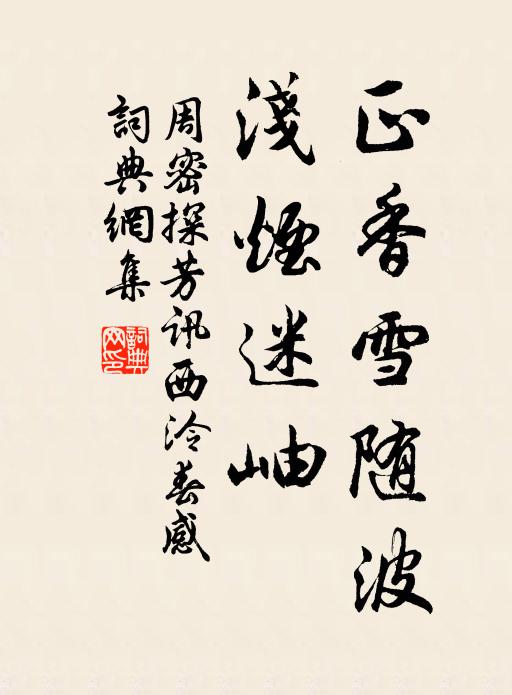 正香雪随波
淺煙迷岫
周密探芳讯西泠春感
詞典網集
詞典
网印